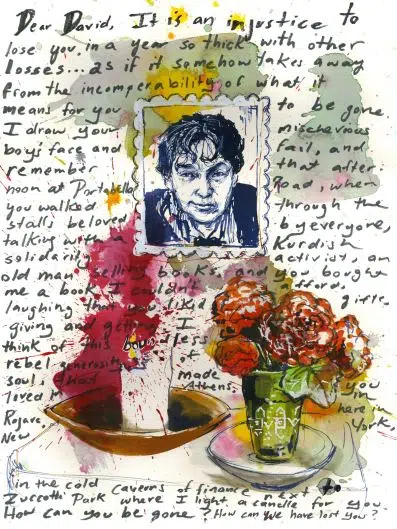 Dear David, It is an injustice to
lose you, in a year so thick with other
losses...as if it somehow takes away
from the incomperability of what it
means for you to be gone.
I draw your mischevous
boys' face and fail, and
remember that after-
noon at Portobello Road, when
you walked through the
stalls beloved by everyone,
talking with a Kurdish
solidarity activist, an
old man selling books, and you bought
me a book I couldn't afford,
laughing that you liked gifts.
giving and getting I
think of this
rebel generosity of
soul, that made you
loved in Athens, here in
Rojava, York,
New
in the cold caverns of finance next to
Zuccotti Park where I light a candle for you.
How can you be gone? How can we have lost you?